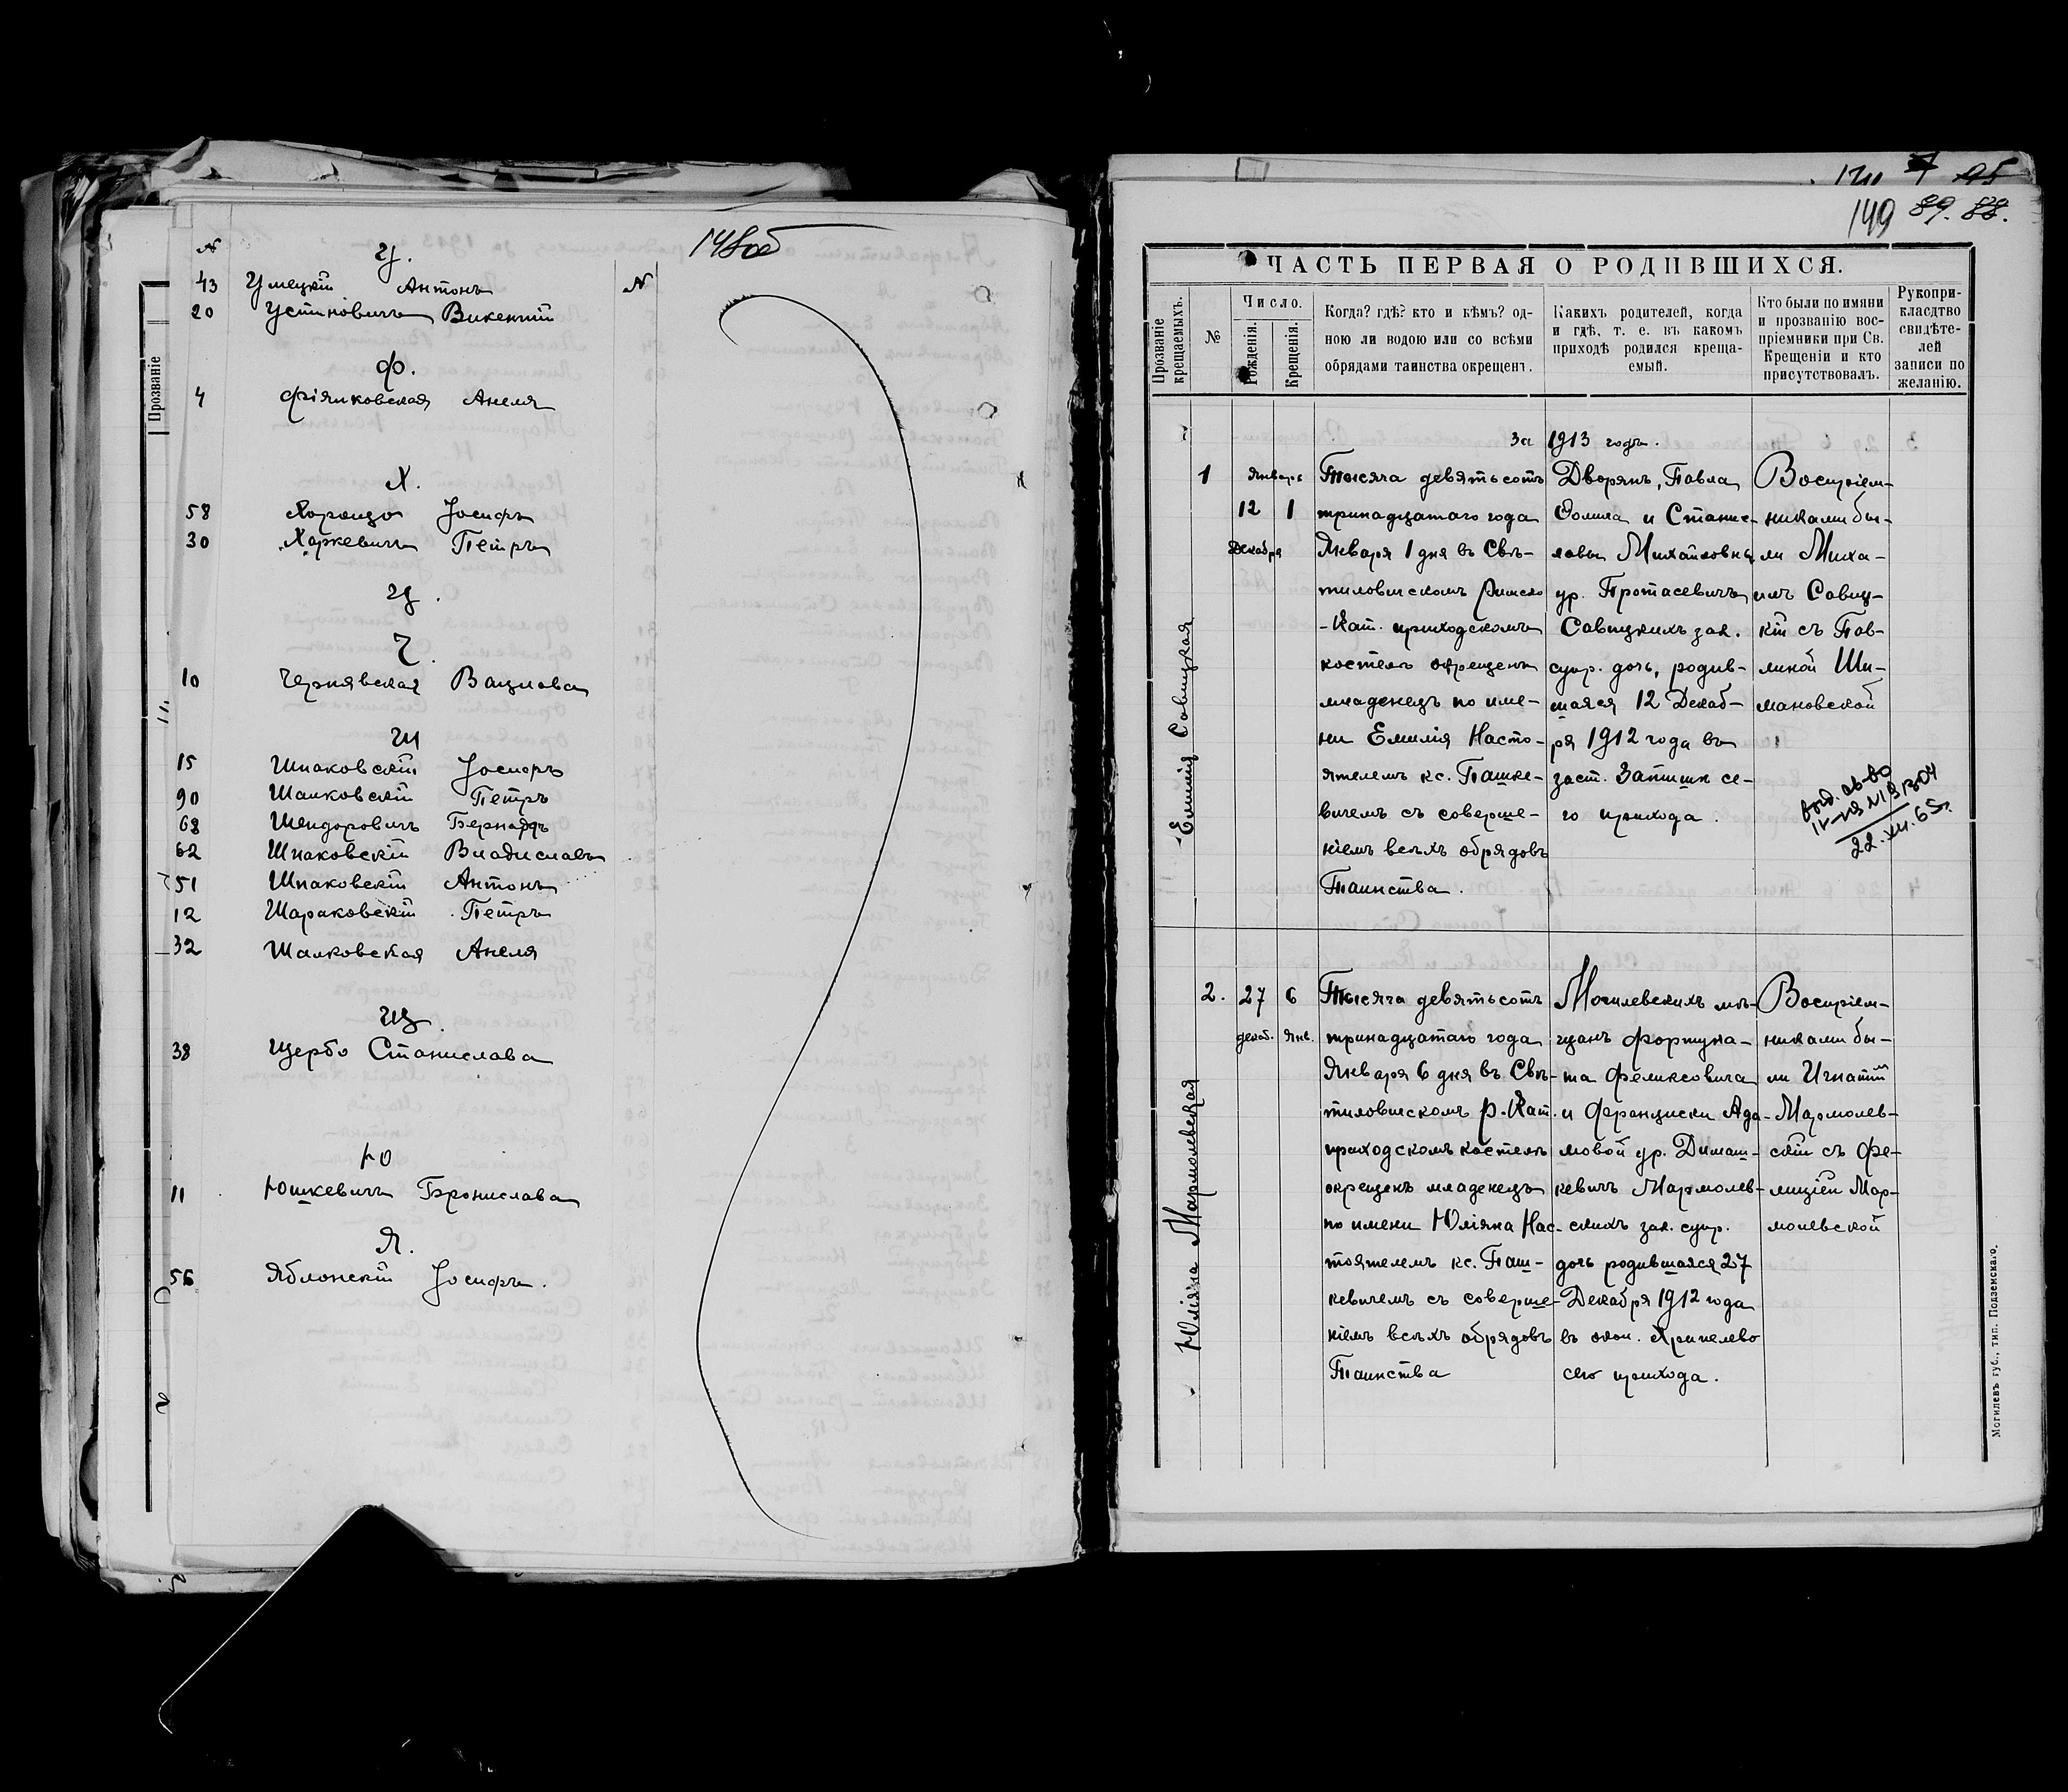 148об
№
У.
43 Умецкій Антонъ №
20 Устиновичъ Викентій
Ф.
4 Фіялковская Анеля
Х.
58 Іосифъ
30 Харкевичъ Петръ
Ц.
Ч.
10 Чернявская Вацлава
Ш
15 Шпаковскій Іосифъ
90 Шалковскій Петръ
68 Шендоровичъ Бернардъ
62 Шпаковскій Владиславъ
51 Шпаковскій Антонъ
12 Шараковскій Петръ
32 Шалковская Анеля
Щ.
38 Щербо Станислава
Ю
11 Юшкевичъ Бронислава
Я.
56 Яблонскій Іосифъ.
Прозваніе
95
149 89. 88.
ЧАСТЬ ПЕРВАЯ О РОДИВШИХСЯ.
Прозваніе крещаемыхъ.
№
Число.
Рожденія.
Крещенія.
Когда? гдѣ? кто и кѣмъ? од-
ною ли водою или со всѣми
обрядами таинства окрещенъ.
Какихъ родителей, когда
и гдѣ, т. е. въ какомъ
приходѣ родился креща-
емый.
Кто были по имяни
и прозванію вос-
пріемники при Св.
Крещеніи и кто
присутствовалъ.
Рукопри-
кладство
свидѣте-
лей
записи по
желанію.
За 1913 годъ.
Емилія Савицкая
1
Январь
12 1
Декабря
Тысяча девятьсотъ
тринадцатаго года
Января 1 дня въ Свѣ-
тиловискомъ Римско
-Кат. приходскомъ
костелѣ окрещенъ
младенецъ по име-
ни Емилія Насто-
ятелемъ кс. Пашке-
вичемъ съ соверше-
ніемъ всѣхъ обрядовъ
Таинства.
Дворянъ, Павла
Фомича и Станис-
лавы Михайловны
ур. Протасевичъ
Савицкихъ зак.
супр. дочь, родив-
шаяся 12 Декаб-
ря 1912 года въ
заст. се-
го прихода.
Воспріем-
никами бы-
ли Миха-
илъ Савиц-
кій съ Пав-
линой Ши-
мановской
22.XII.65.
Юліяна Мармолевская
2. 27 6
декаб. Янв.
Тысяча девятьсотъ
тринадцатаго года
Января 6 дня въ Свѣ-
тиловискомъ р.-Кат.
приходскомъ костелѣ
окрещенъ младенецъ
по имени Юліяна Нас-
тоятелемъ кс. Паш-
кевичемъ съ соверше-
ніемъ всѣхъ обрядовъ
Таинства
Могилевскихъ мѣ-
щанъ Фортуна-
та Феликсовича
и Францишки Ада-
мовой ур. Димаш-
кевичъ Мармолев-
скихъ зак. супр.
дочь родившаяся 27
Декабря 1912 года
въ окол. Хрипелево
сего прихода.
Воспріем-
никами бы-
ли Игнатій
Мармолев-
скій съ Фе-
лиціей Мар-
молевской
Могилевъ губ., тип. Подземскаго.